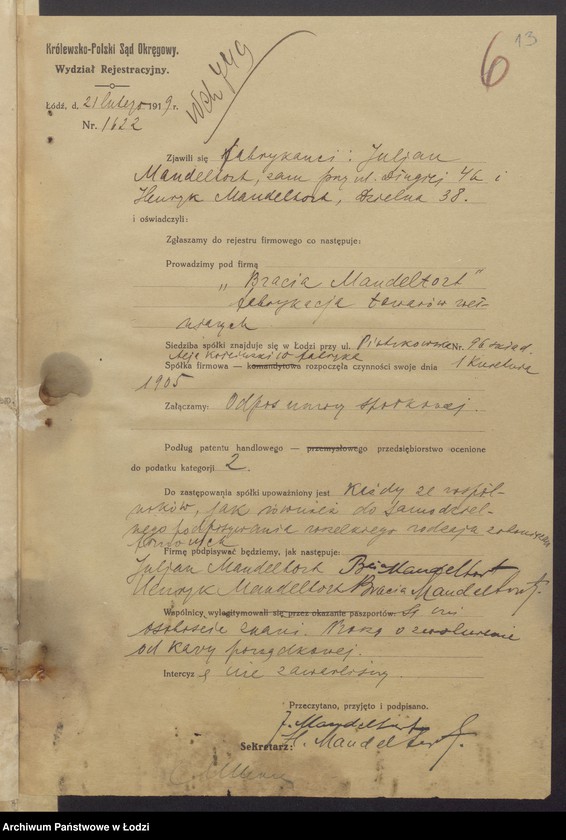 6 13
Królewsko-Polski Sąd Okręgowy.
Wydział Rejestracyjny.
Łódź, d. 21 lutego 1919 r.
Nr. 1622
Zjawili się fabrykanci: Juljan
Mandeltort, zam przy ul. Długiej 46 i
Henryk Mandeltort, Dzielna 38.
i oświadczyli:
Zgłaszamy do rejestru firmowego co następuje:
Prowadzimy pod firmą
„Bracia Mandeltort"
fabrykacja towarów weł-
nianych
Siedziba spółki znajduje się w Łodzi przy ul. Piotrkowska Nr. 96 skład.
Aleja Kościuszki fabryka
Spółka firmowa — komandytowa rozpoczęła czynności swoje dnia 1 Kwietnia
1905
Załączamy: Odpis umowy spółkowej.
Podług patentu handlowego — przemysłowego przedsiębiorstwo ocenione
do podatku kategorji 2.
Do zastępowania spółki upoważniony jest Każdy ze wspól-
ników, jak również do samodziel-
nego podpisywania wszelkiego rodzaju zobowiązań
Firmę podpisywać będziemy, jak następuje:
Juljan Mandeltort Bcia Mandeltort
Henryk Mandeltort Bracia Mandeltort
Wspólnicy wylegitymowali się przez okazanie paszportów: Są mi
osobiście znani. Proszą o zwolnienie
od kary porządkowej.
Intercyzę nie zawarliśmy.
Przeczytano, przyjęto i podpisano.
J. Mandeltort
Sekretarz: H. Mandeltort.
Archiwum Państwowe w Łodzi